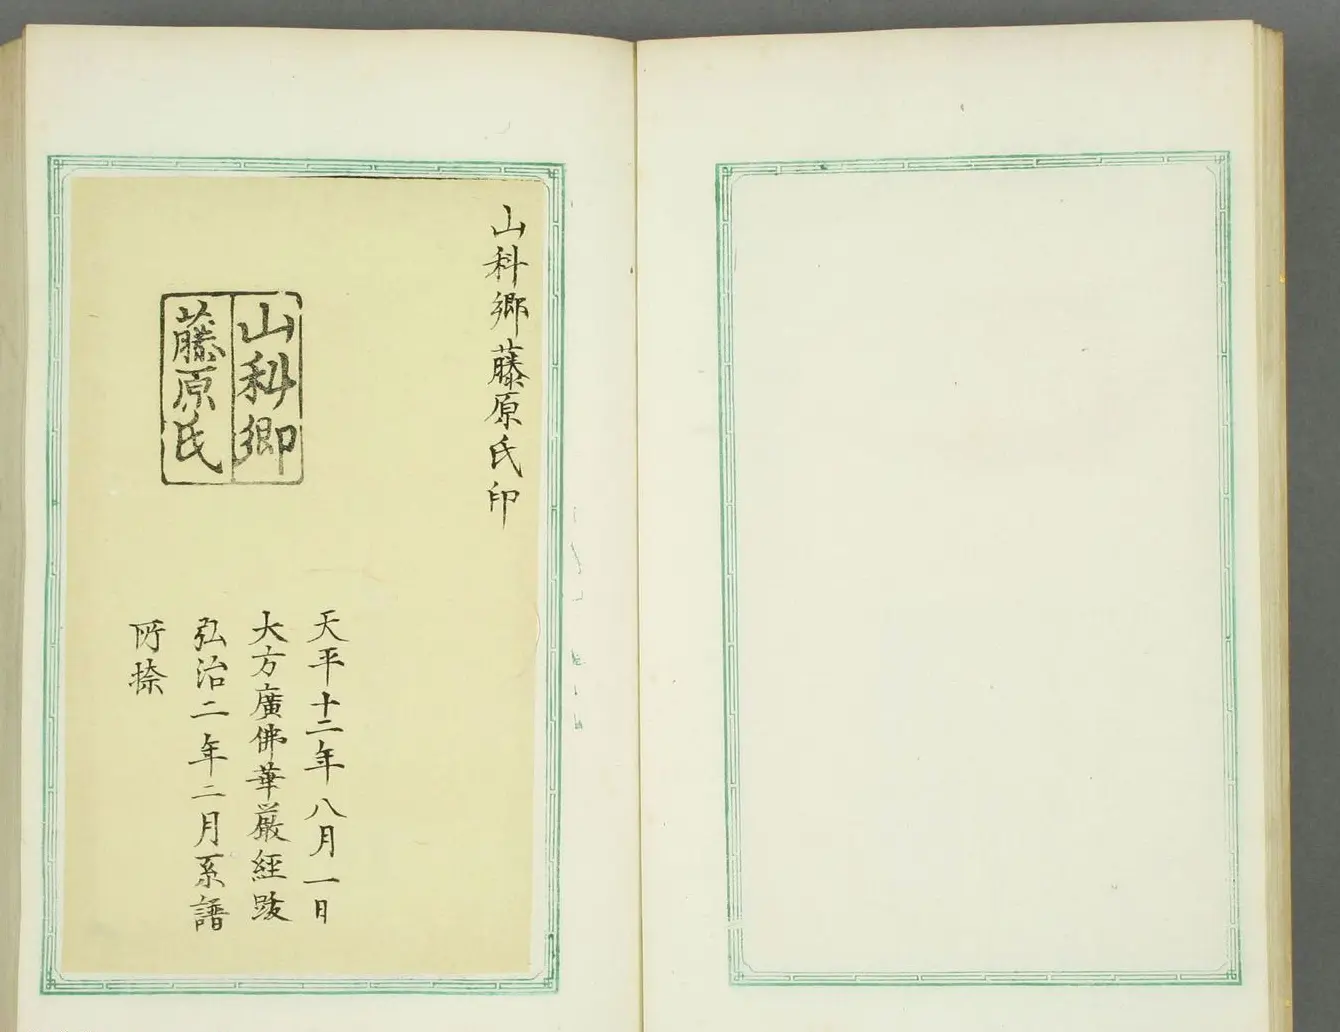 山科郷藤原氏印
山科郷
藤原氏
天平十二年八月一日
大方廣佛華厳経跋
弘治二年二月系譜
所捺